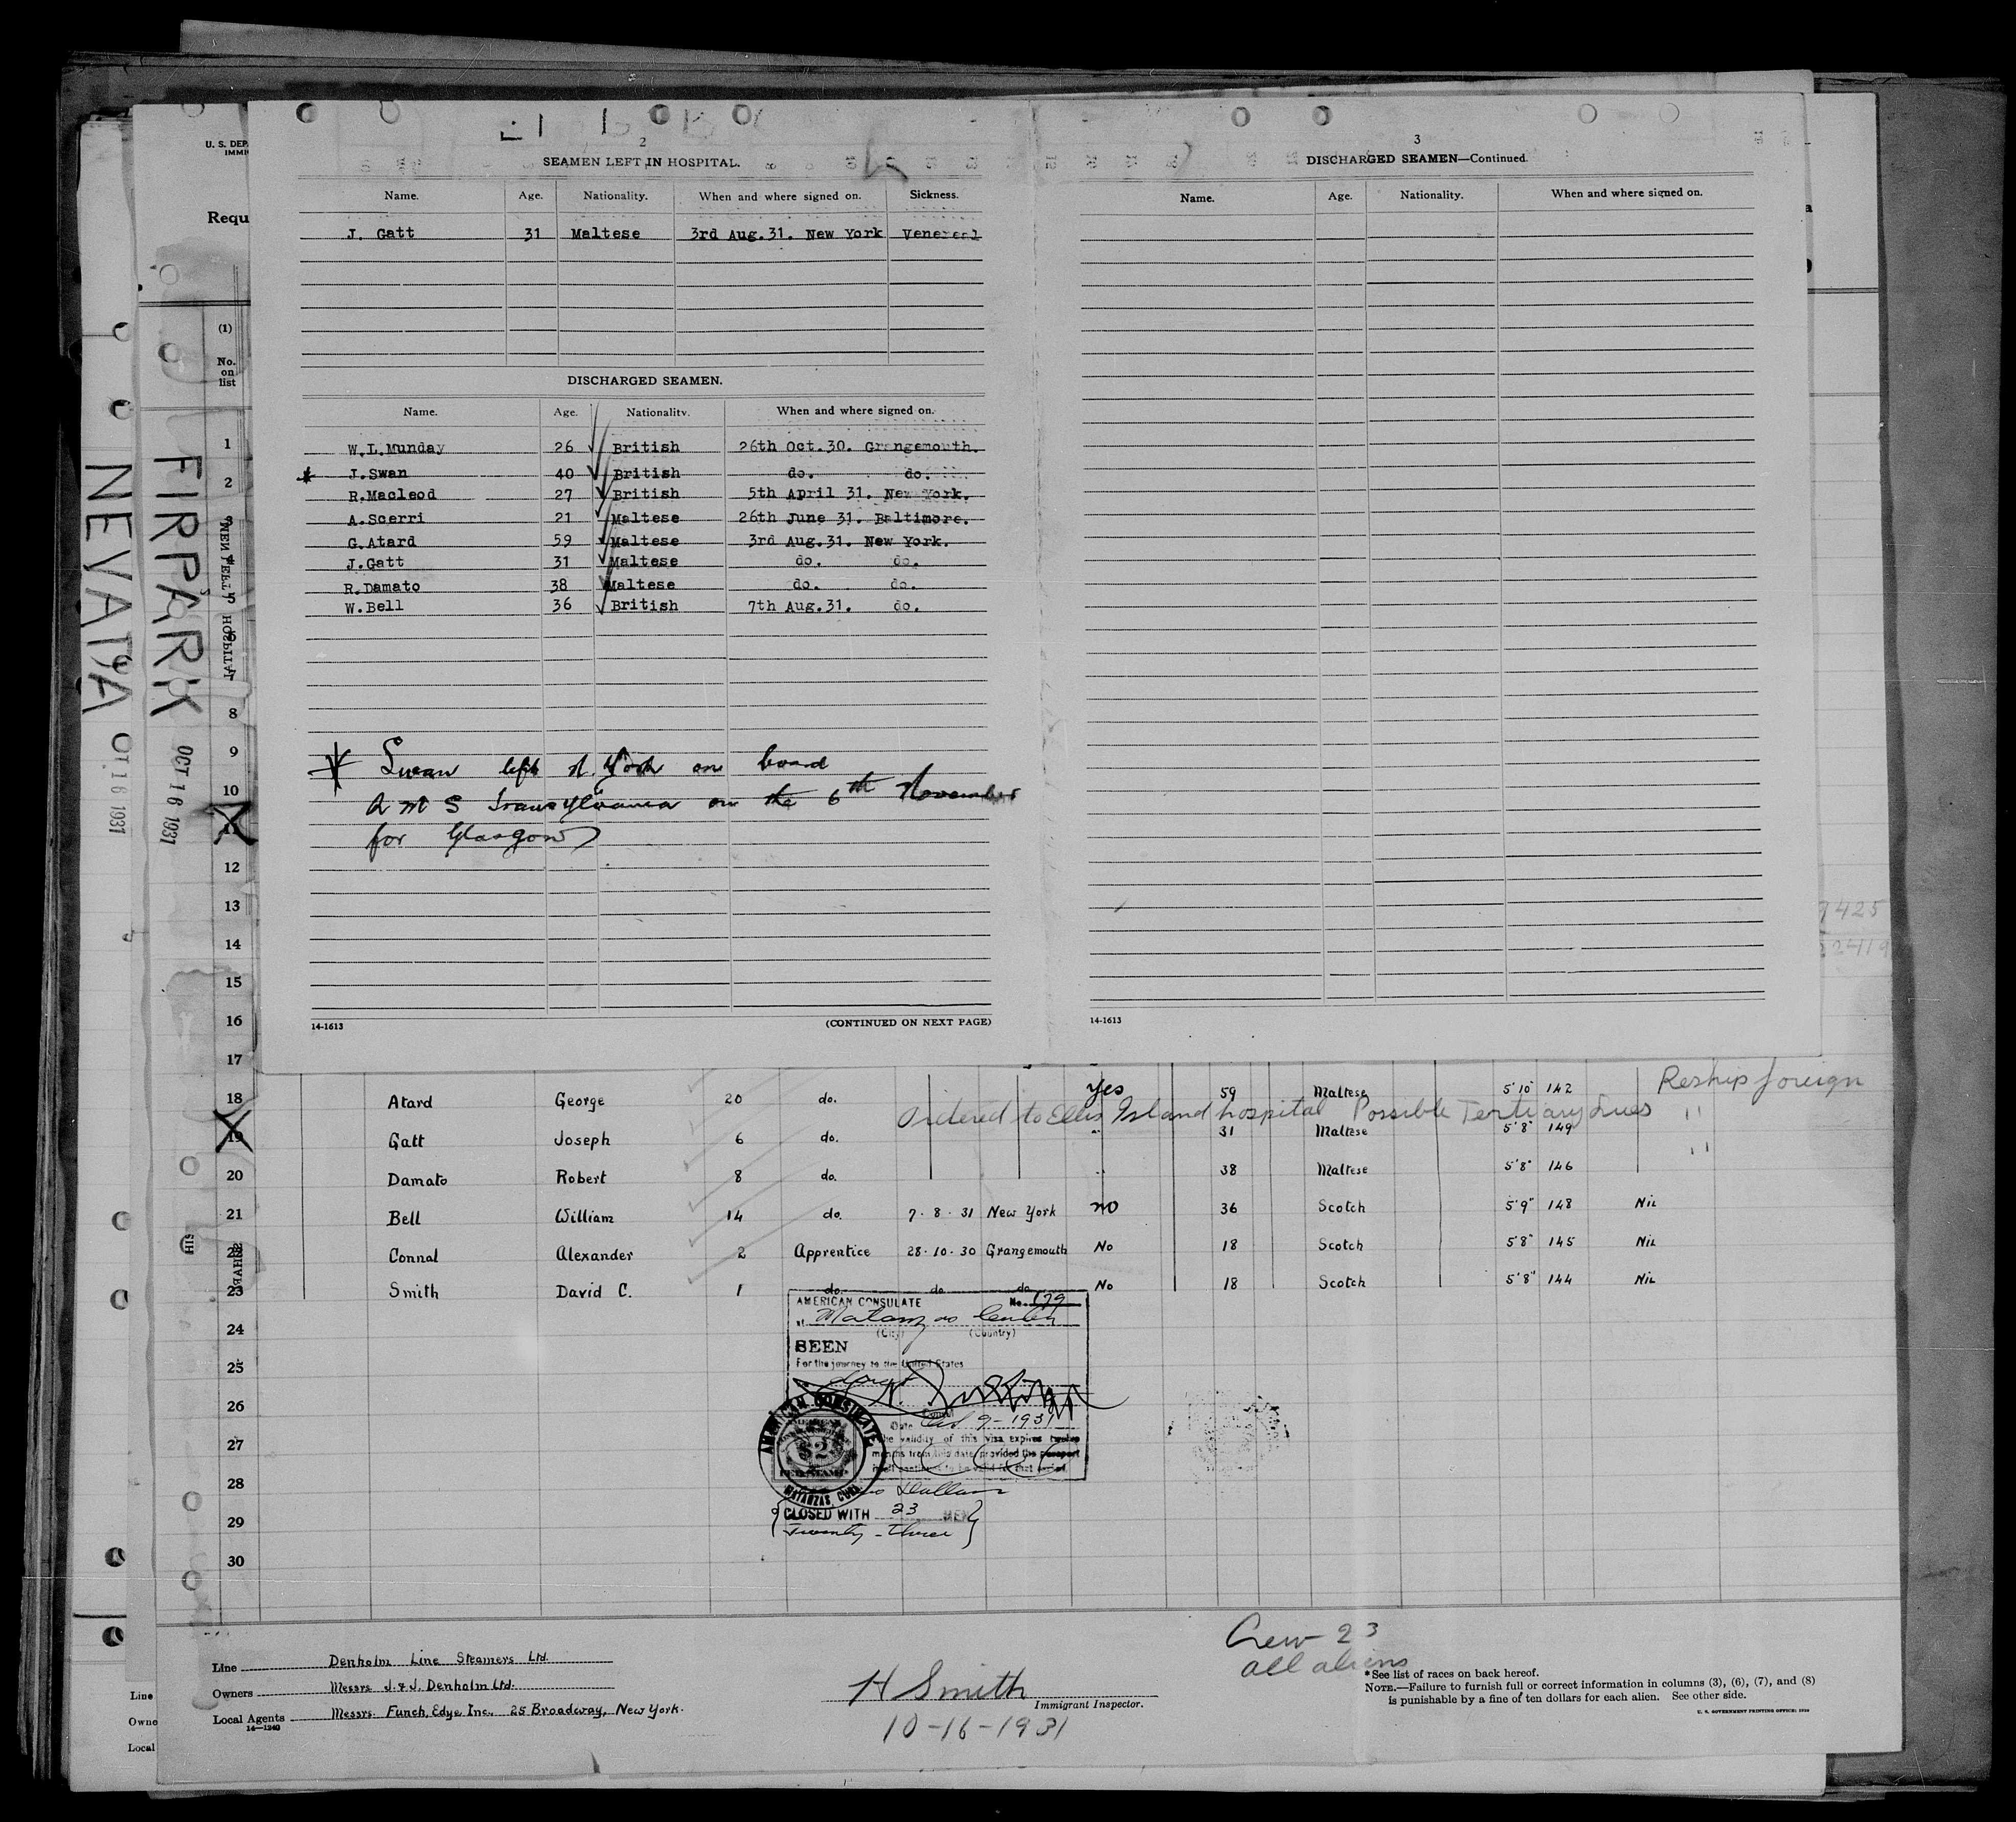 2
SEAMEN LEFT IN HOSPITAL.
Name. Age. Nationality. When and where signed on. Sickness.
J. Gatt 31 Maltese 3rd Aug.31. New York Venereal
DISCHARGED SEAMEN.
Name. Age. Nationality. When and where signed on.
W.L.Munday 26 British 26th Oct.30. Grangemouth.
* J.Swan 40 British do. do.
R.Macleod 27 British 5th April 31. New York.
A.Scerri 21 Maltese 26th June 31. Baltimore.
G.Atard 59 Maltese 3rd Aug.31. New York.
J.Gatt 31 Maltese do. do.
R.Damato 38 Maltese do. do.
W.Bell 36 British 7th Aug.31. do.
* Swan left N. York on board
R M S Transylvania on the 6th November
for Glasgow
14-1613 (CONTINUED ON NEXT PAGE)
3
DISCHARGED SEAMEN—Continued.
Name. Age. Nationality. When and where signed on.
14-1613
U. S. DEP
IMMI
Requ
(1)
No. on list
NEVADA
OCT 16 1931
FIRPARK
OCT 16 1931
MEN LEFT HOSPITAL
1
2
3
4
5
6
7
8
9
10
11
12
13
14
15
16
17
18 Atard George 20 do. Yes 59 Maltese 5'10" 142 Reship foreign
Ordered to Ellis Island hospital Possible Tertiary Lues "
19 Gatt Joseph 6 do. " 31 Maltese 5'8" 149
20 Damato Robert 8 do. " 38 Maltese 5'8" 146 "
21 Bell William 14 do. 7.8.31 New York no 36 Scotch 5'9" 148 Nil
22 Connal Alexander 2 Apprentice 28.10.30 Grangemouth No 18 Scotch 5'8" 145 Nil
23 Smith David C. 1 do. do do No 18 Scotch 5'8" 144 Nil
24
25
26
27
28
29
30
AMERICAN CONSULATE No. 179
at Matanzas Cuba
(City) (Country)
SEEN
For the journey to the United States
Consul
Date Oct 9-1931
The validity of this visa expires twelve
months from this date provided the passport
itself continues to be valid for that period.
AMERICAN CONSULATE
$2
MATANZAS, CUBA
Dollars
CLOSED WITH 23 MEN
Twenty-three
Crew 23
all aliens
Line Denholm Line Steamers Ltd.
Owners Messrs. J. & J. Denholm Ltd.
Local Agents Messrs. Funch, Edye, Inc. 25 Broadway, New York.
14—1240
H Smith
Immigrant Inspector.
10-16-1931
* See list of races on back hereof.
NOTE.—Failure to furnish full or correct information in columns (3), (6), (7), and (8)
is punishable by a fine of ten dollars for each alien. See other side.
U. S. GOVERNMENT PRINTING OFFICE: 1930
Line
Owne
Local
7425
22419